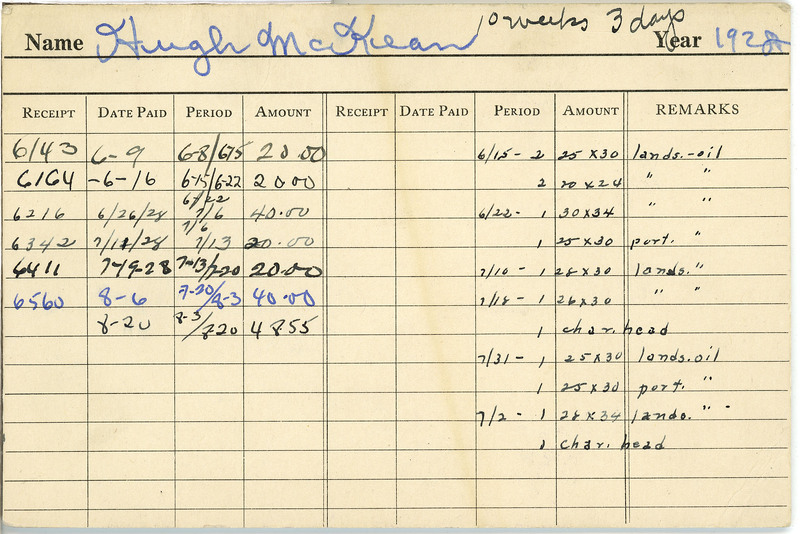 Name Hugh McKean 10 weeks 3 days Year 1928
RECEIPT DATE PAID PERIOD AMOUNT RECEIPT DATE PAID PERIOD AMOUNT REMARKS
6143 6-9 6-8/6-15 20.00 6/15- 2 25 x 30 lands.-oil
6164 -6-16 6-15/6-22 20.00 2 20 x 24 " "
6216 6/26/28 6/22 7/6 40.00 6/22- 1 30 x 34 " "
6342 7/11/28 7/6 7/13 20.00 1 25 x 30 port. "
6411 7-19-28 7-13/7-20 20.00 7/10- 1 28 x 30 lands. "
6560 8-6 7-20/8-3 40.00 7/18- 1 26 x 30 " "
8-20 8-3/8-20 48.55 1 char. head
7/31- 1 25 x 30 lands. oil
1 25 x 30 port. "
7/2- 1 28 x 34 lands. " -
1 char. head